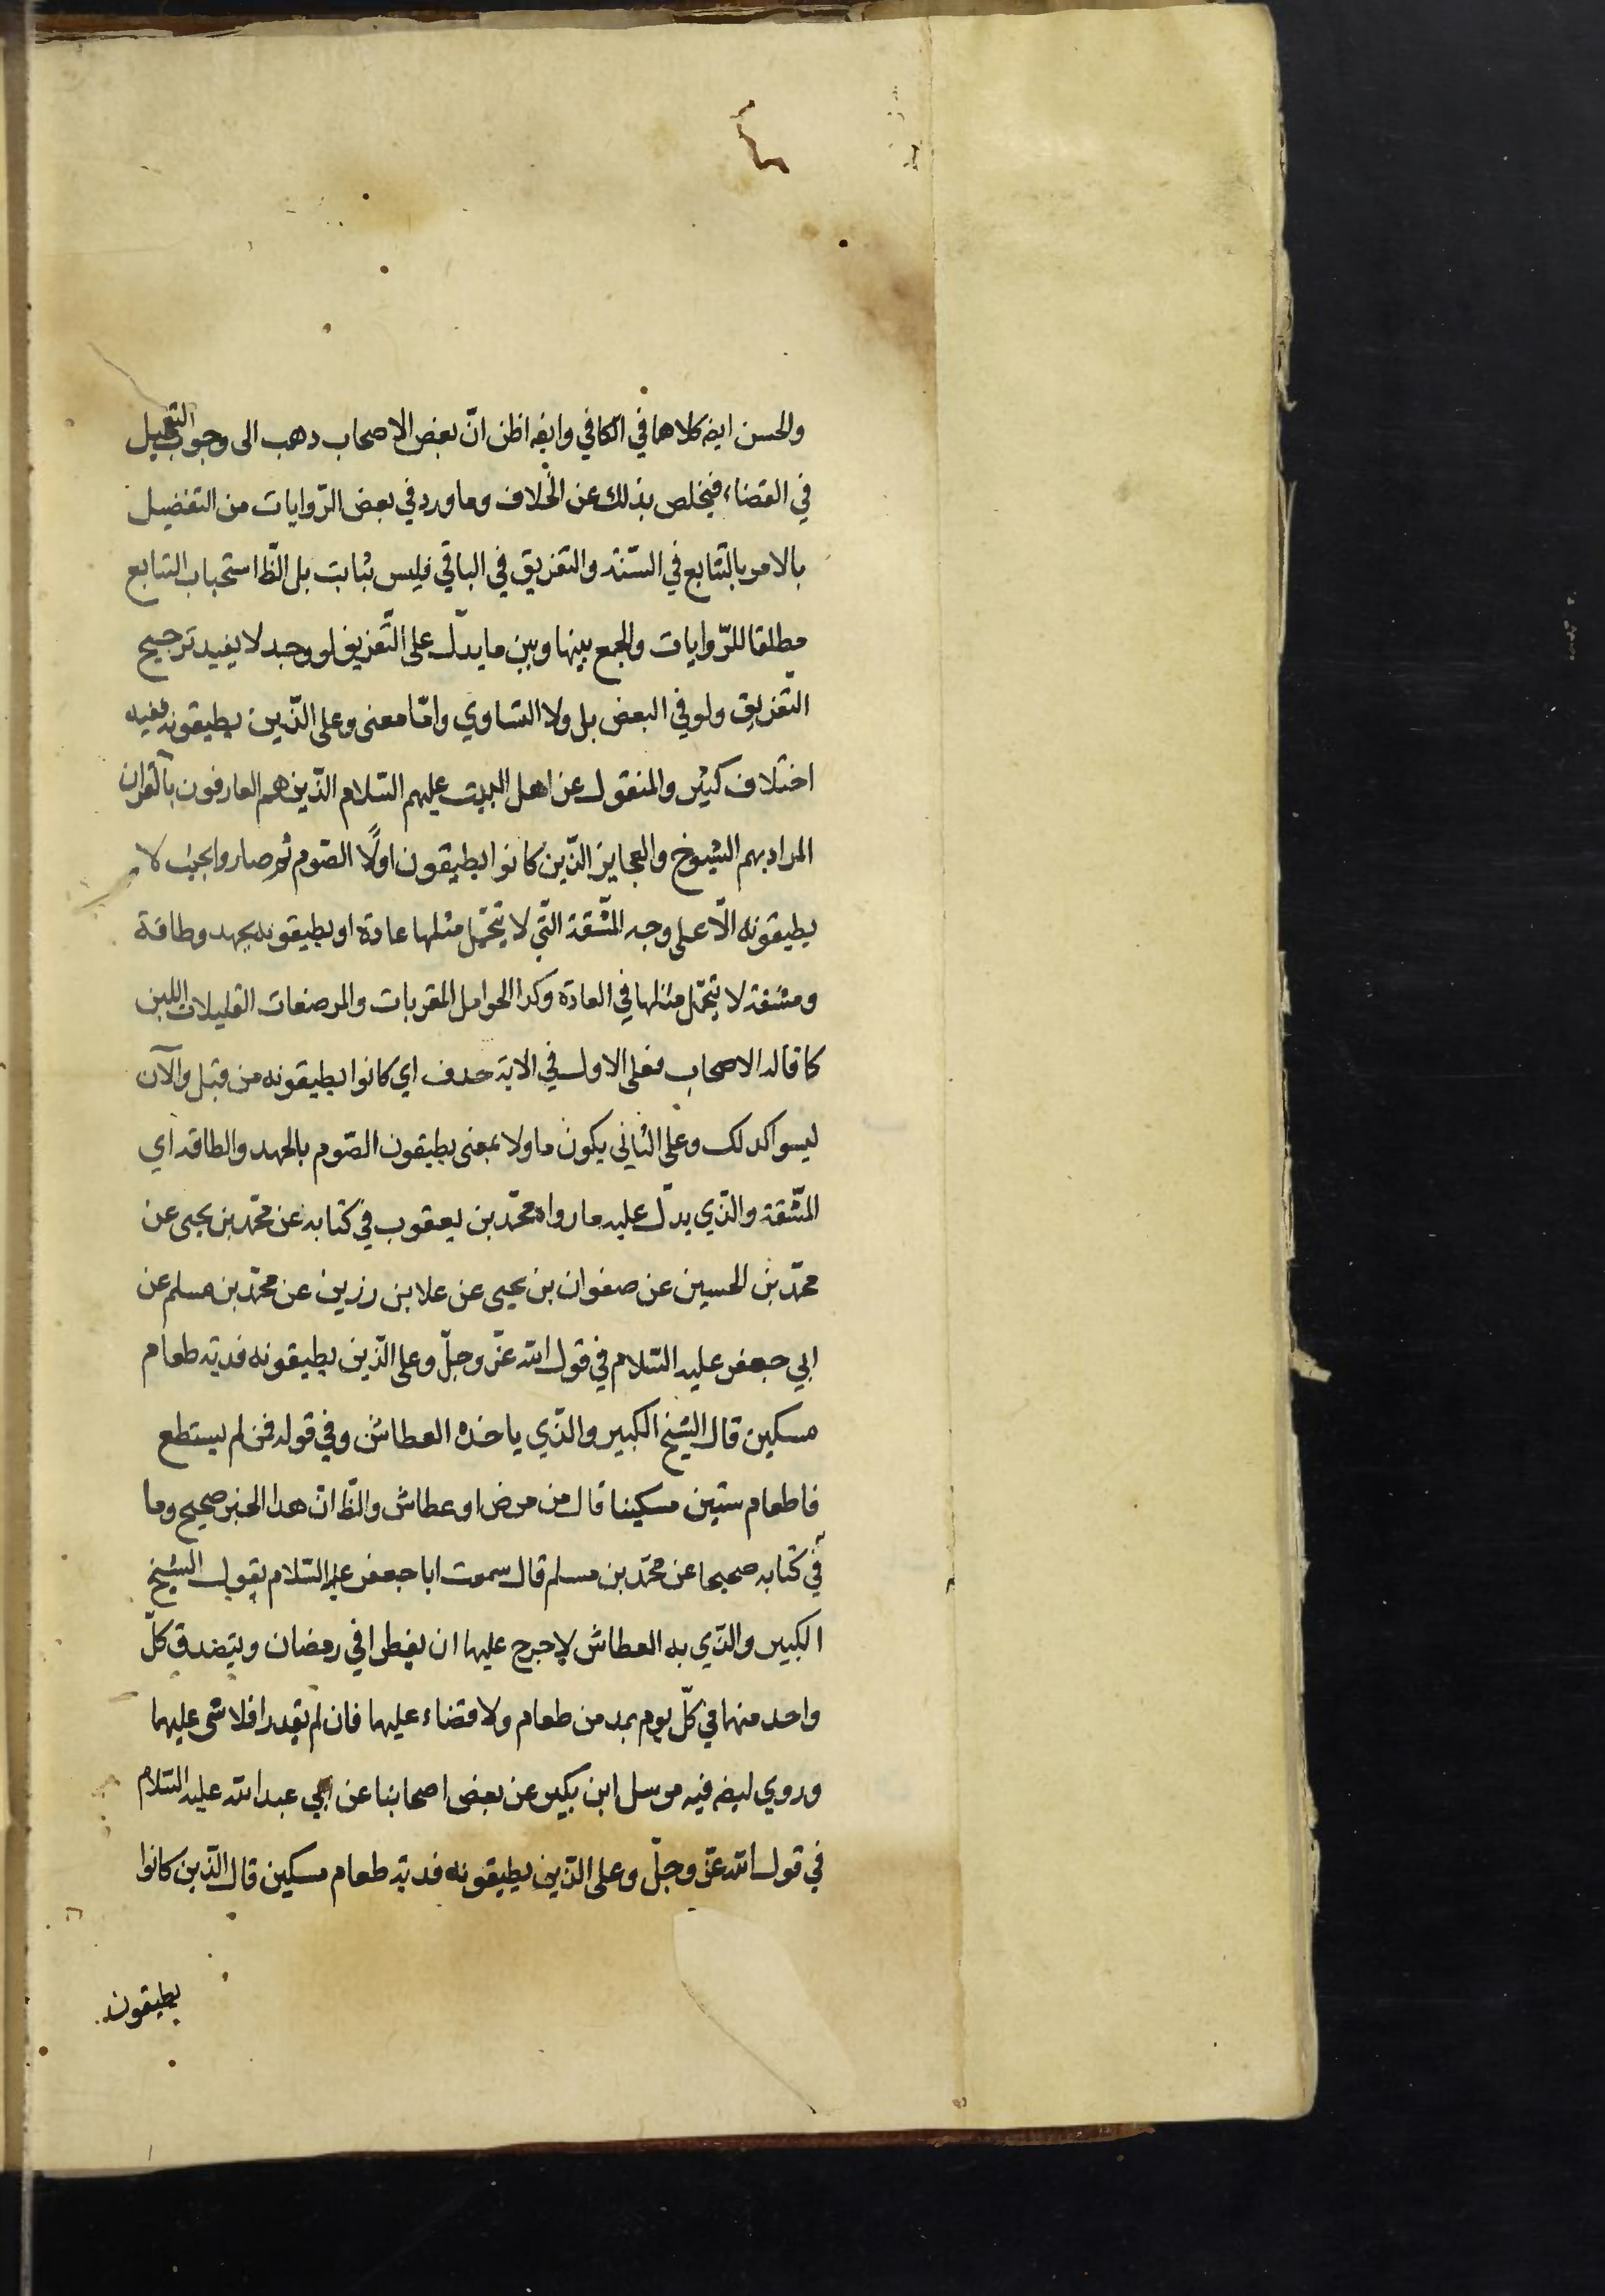 والحسن ايضه كلاهما في الكافي وايضه اظن انّ بعض الاصحاب دهب الى وجوب التعجيل
في القضاء، فيخلص بذلك عن الخلاف وما ورد في بعض الرّوايات من التفضيل
بالامر بالتّتابع في السّتة والتفريق في الباقي فليس بثابت بل الظّ استحباب التتابع
مطلقا للرّوايات والجمع بينها وبين ما يدلّ على التّفريق لو وجد لا يفيد ترجيح
التّفريق ولو في البعض بل ولا التساوي وامّا معنى وعلى الذّين يطيقونه ففيه
اختلاف كثير والمنقول عن اهل البيت عليهم السّلام الذّين هم العارفون بالقرآن
المراد بهم الشيوخ والعجايز الذّين كانوا يطيقون اولًا الصّوم ثم صاروا بحيث لا
يطيقونه الّا على وجه المشّقة التّي لا يتحمّل مثلها عادة او يطيقونه بجهد وطاقة
ومشقة لا يتحمّل مثلها في العادة وكدا الحوامل المقربات والمرضعات القليلات اللبن
كما قاله الاصحاب فعلى الاول في الاية حدف اي كانوا يطيقونه من قبل والآن
ليسوا كدلك وعلى الثاني يكون ماولا بمعنى يطيقون الصّوم بالجهد والطاقة اي
المشّقة والذّي يدلّ عليه ما رواه محمّد بن يعقوب في كتابه عن محمّد بن يحيى عن
محمّد بن الحسين عن صفوان بن يحيى عن علا بن رزين عن محمّد بن مسلم عن
ابي جعفر عليه السّلام في قول الله عزّ وجلّ وعلى الذّين يطيقونه فدية طعام
مسكين قال الشيخ الكبير والذّي ياخذه العطاش وفي قوله فمن لم يستطع
فاطعام ستين مسكينا قال من مرض او عطاش والظّ انّ هدا الخبر صحيح وما
في كتابه صحيحا عن محمّد بن مسلم قال سمعت ابا جعفر عليه السّلام يقول الشيخ
الكبير والذّي به العطاش لا حرج عليهما ان يفطرا في رمضان ويتصدق كلّ
واحد منهما في كلّ يوم بمد من طعام ولا قضاء عليهما فان لم يقدرا فلا شى عليهما
وروي ايضه فيه مرسل ابن بكير عن بعض اصحابنا عن ابي عبد الله عليه السّلام
في قول الله عزّ وجلّ وعلى الذّين يطيقونه فدية طعام مسكين قال الذّين كانوا
يطيقون